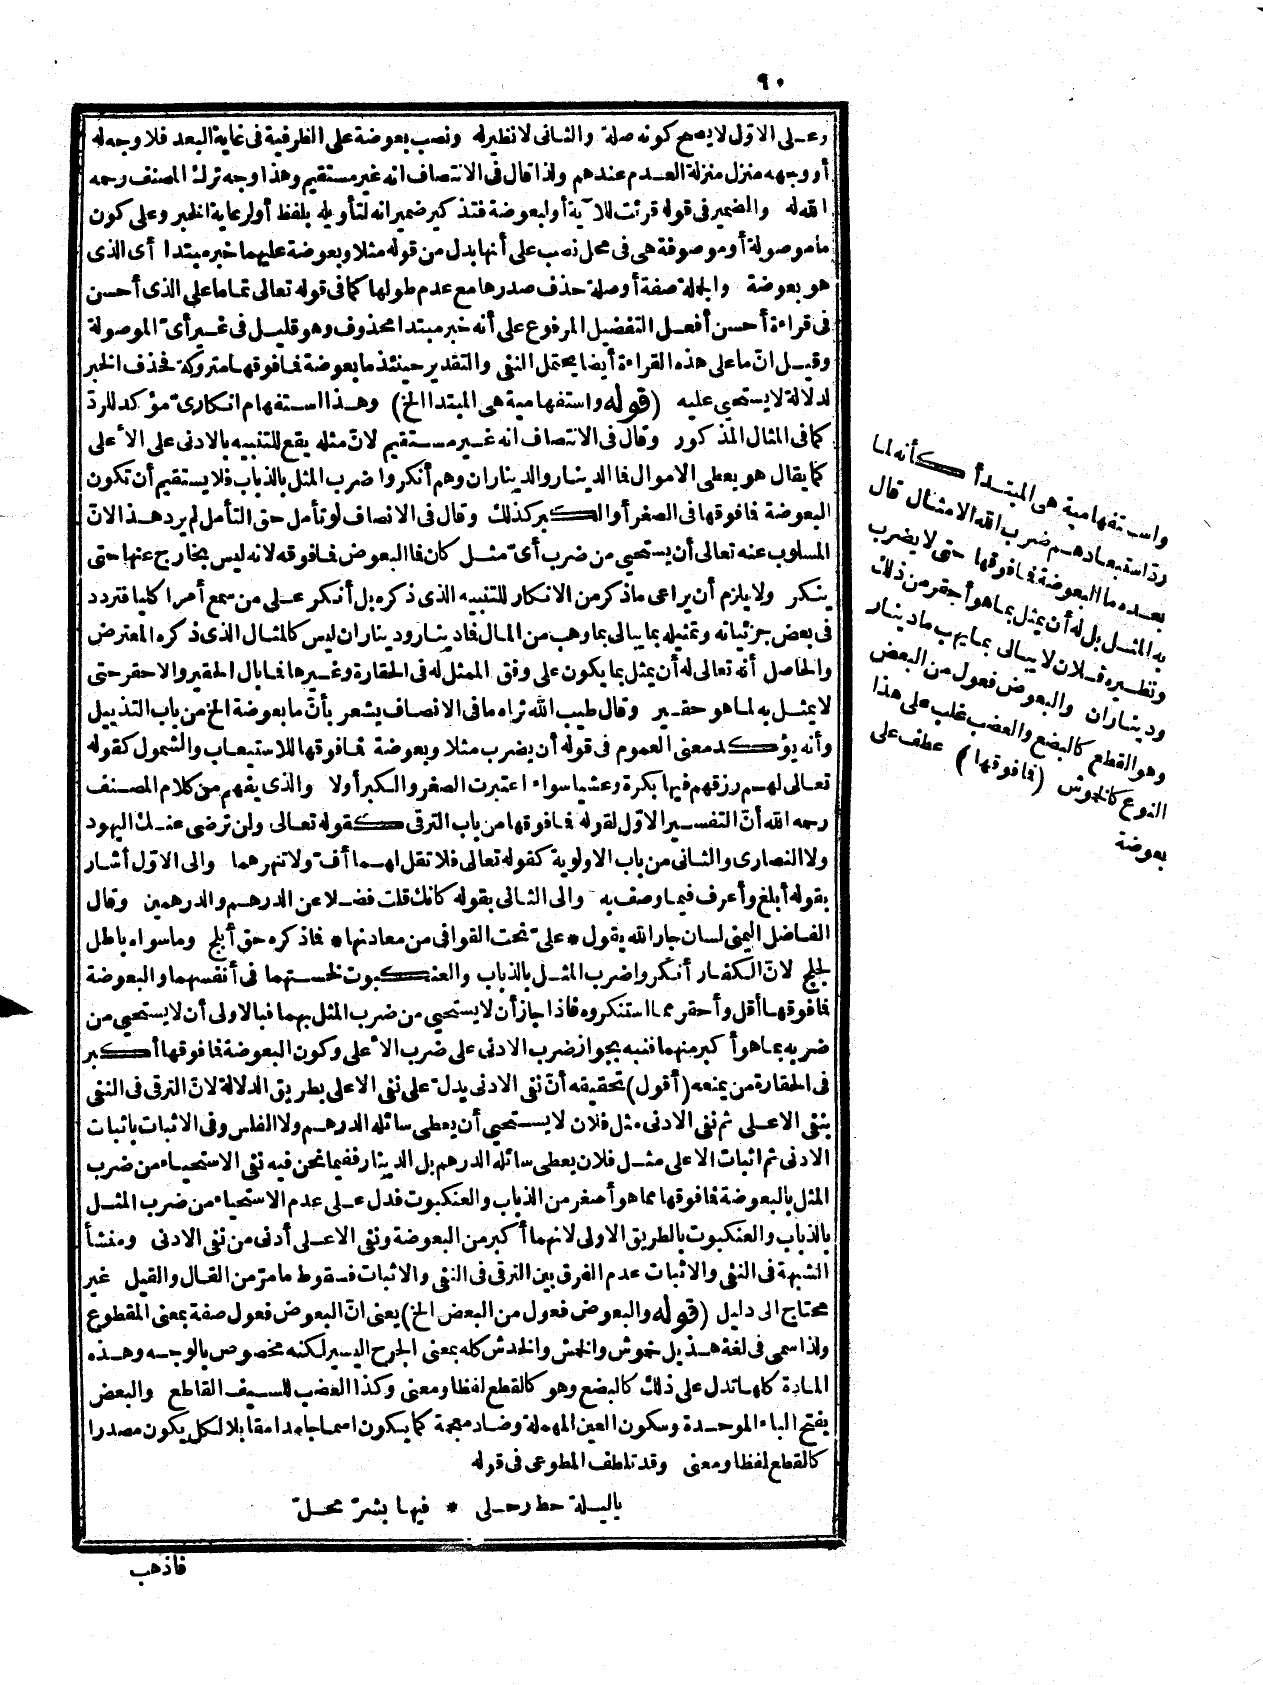 ٩٠
وعلى الاوّل لا يصح كونه صلة والثانى لا نظير له ونصب بعوضة على الظرفية فى غاية البعد فلا وجه له
أو وجهه منزل منزلة العدم عندهم ولذا قال فى الانتصاف انه غير مستقيم وهذا وجه ترك المصنف رحمه
الله له والضمير فى قوله قرئت للآية أو لبعوضة فتذكير ضمير انه لتأويله بلفظ أو لرعاية الخبر وعلى كون
ما موصولة أو موصوفة هى فى محل نصب على أنها بدل من قوله مثلا وبعوضة عليهما خبر مبتدا أى الذى
هو بعوضة والجملة صفة أو صلة حذف صدرها مع عدم طولها كما فى قوله تعالى تماما على الذى أحسن
فى قراءة أحسن أفعل التفضيل المرفوع على أنه خبر مبتدا محذوف وهو قليل فى غير أىّ الموصولة
وقيل انّ ما على هذه القراءة أيضا يحتمل النفى والتقدير حينئذ ما بعوضة فما فوقها متروكة فحذف الخبر
لدلالة لا يستحيى عليه (قوله واستفهامية هى المبتدا الخ) وهذا استفهام انكارىّ مؤكد للردّ
كما فى المثال المذكور وقال فى الانتصاف انه غير مستقيم لانّ مثله يقع للتنبيه بالادنى على الأعلى
كما يقال هو يعطى الاموال فما الدينار والديناران وهم أنكروا ضرب المثل بالذباب فلا يستقيم أن تكون
البعوضة فما فوقها فى الصغر أو الكبر كذلك وقال فى الانصاف لو تأمل حق التأمل لم يرد هذا لانّ
المسلوب عنه تعالى أن يستحيى من ضرب أىّ مثل كان فما البعوض فما فوقه لانه ليس بخارج عنها حتى
ينكر ولا يلزم أن يراعى ما ذكر من الانكار للتنبيه الذى ذكره بل أنكر على من سمع أمرا كليا فتردد
فى بعض جزئياته وتمثيله بما يبالى بما وهب من المال فما دينار وديناران ليس كالمثال الذى ذكره المعترض
والحاصل أنه تعالى له أن يمثل بما يكون على وفق الممثل له فى الحقارة وغيرها فما بال الحقير والاحقر حتى
لا يمثل به لما هو حقير وقال طيب الله ثراه ما فى الانصاف يشعر بأنّ ما بعوضة الخ من باب التذييل
وأنه يؤكد معنى العموم فى قوله أن يضرب مثلا وبعوضة فما فوقها للاستيعاب والشمول كقوله
تعالى لهم رزقهم فيها بكرة وعشيا سواء اعتبرت الصغر والكبر أولا والذى يفهم من كلام المصنف
رحمه الله أنّ التفسير الاوّل لقوله فما فوقها من باب الترقى كقوله تعالى ولن ترضى عنك اليهود
ولا النصارى والثانى من باب الاولوية كقوله تعالى فلا تقل لهما أفّ ولا تنهرهما والى الاوّل أشار
بقوله أبلغ وأعرف فيما وصف به والى الثانى بقوله كانك قلت فضلا عن الدرهم والدرهمين وقال
الفاضل اليمنى لسان جار الله يقول * علىّ نحت القوافى من معادنها * فما ذكره حق أبلج وما سواه باطل
لجلج لانّ الكفار أنكروا ضرب المثل بالذباب والعنكبوت لخستهما فى أنفسهما والبعوضة
فما فوقها أقل وأحقر مما استنكروه فاذا جاز أن لا يستحيى من ضرب المثل بهما فبالاولى أن لا يستحيى من
ضربه بما هو أكبر منهما فنبه بجواز ضرب الادنى على ضرب الأعلى وكون البعوضة فما فوقها أكبر
فى الحقارة من يمنعه (أقول) تحقيقه أنّ نفى الادنى يدلّ على نفى الاعلى بطريق الدلالة لانّ الترقى فى النفى
بنفى الاعلى ثم نفى الادنى مثل فلان لا يستحيى أن يعطى سائله الدرهم ولا الفلس وفى الاثبات باثبات
الادنى ثم اثبات الاعلى مثل فلان يعطى سائله الدرهم بل الدينار ففيما نحن فيه نفى الاستحياء من ضرب
المثل بالبعوضة فما فوقها مما هو أصغر من الذباب والعنكبوت فدل على عدم الاستحياء من ضرب المثل
بالذباب والعنكبوت بالطريق الاولى لانهما أكبر من البعوضة ونفى الاعلى أدنى من نفى الادنى ومنشأ
الشبهة فى النفى والاثبات عدم الفرق بين الترقى فى النفى والاثبات فسقوط ما مرّ من القال والقيل غير
محتاج الى دليل (قوله والبعوض فعول من البعض الخ) يعنى انّ البعوض فعول صفة بمعنى المقطوع
ولذا سمى فى لغة هذيل خموش والخمش والخدش كله بمعنى الجرح اليسير لكنه مخصوص بالوجه وهذه
المادة كلها تدل على ذلك كالبضع وهو كالقطع لفظا ومعنى وكذا العضب للسيف القاطع والبعض
بفتح الباء الموحدة وسكون العين المهملة وضاد معجمة كما يكون اسما جامدا مقابلا لكل يكون مصدرا
كالقطع لفظا ومعنى وقد تلطف المطوعى فى قوله
يا ليلة حط رحلى * فيها بشرّ محلّ
فاذهب
واستفهامية هى المبتدأ كأنه لما
ردّ استبعادهم ضرب الله الامثال قال
بعده ما البعوضة فما فوقها حتى لا يضرب
به المثل بل له أن يمثل بما هو أحقر من ذلك
ونظيره فلان لا يبالى بما يهب ما دينار
وديناران والبعوض فعول من البعض
وهو القطع كالبضع والعضب غلب على هذا
النوع كالخموش (فما فوقها) عطف على
بعوضة